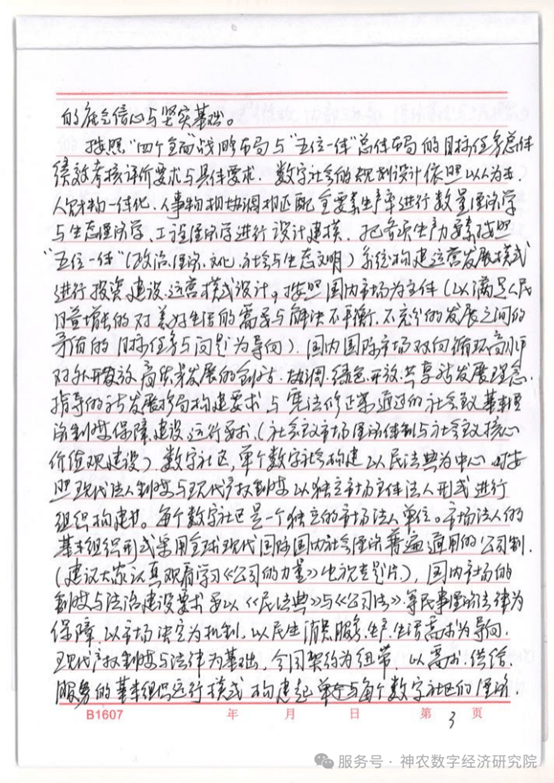 的社会信心与坚实基础。
按照“四个全面”战略布局与“五位一体”总体布局的目标任务总体
绩效考核评价要求与具体要求，数字社会的规划设计依照以人为本，
人财物一体化、人事物相协调相匹配全要素生产率进行数量经济学
与生态经济学、工程经济学进行设计建模，把各项生产力要素按照
“五位一体”(政治、经济、文化、社会与生态文明)系统构建运营发展模式
进行投资建设运营模式设计，按照国内市场为主体(以满足人民
日益增长的对美好生活的需要与解决不平衡、不充分的发展之间的
矛盾的目标任务与问题为导向)，国内国际市场双向循环高水平
对外开放高质量发展的创新、协调、绿色、开放、共享新发展理念
指导的新发展格局构建要求与宪法修正案通过的社会主义基本经
济制度保障建设运行要求(社会主义市场经济体制与社会主义核心
价值观建设)，数字社区，单个数字社会构建以民法典为中心按
照现代法人制度与现代产权制度以独立市场主体法人形式进行
组织构建。每个数字社区是一个独立的市场法人单位。市场法人的
基本组织形式采用全球现代国际国内社会经济普遍适用的公司制，
(建议大家认真观看学习《公司的力量》电视专题片)，国内市场的
制度与法治建设要求要以《民法典》与《公司法》等民事经济法律为
保障，以市场决定为机制，以民生消费服务、生产、生活需求为导向，
现代产权制度与法律为基础，合同契约为纽带，以需求、供给、
服务的基本组织运行模式构建起单个与每个数字社区的经济、
B1607 年 月 日 第 3 页
服务号 · 神农数字经济研究院